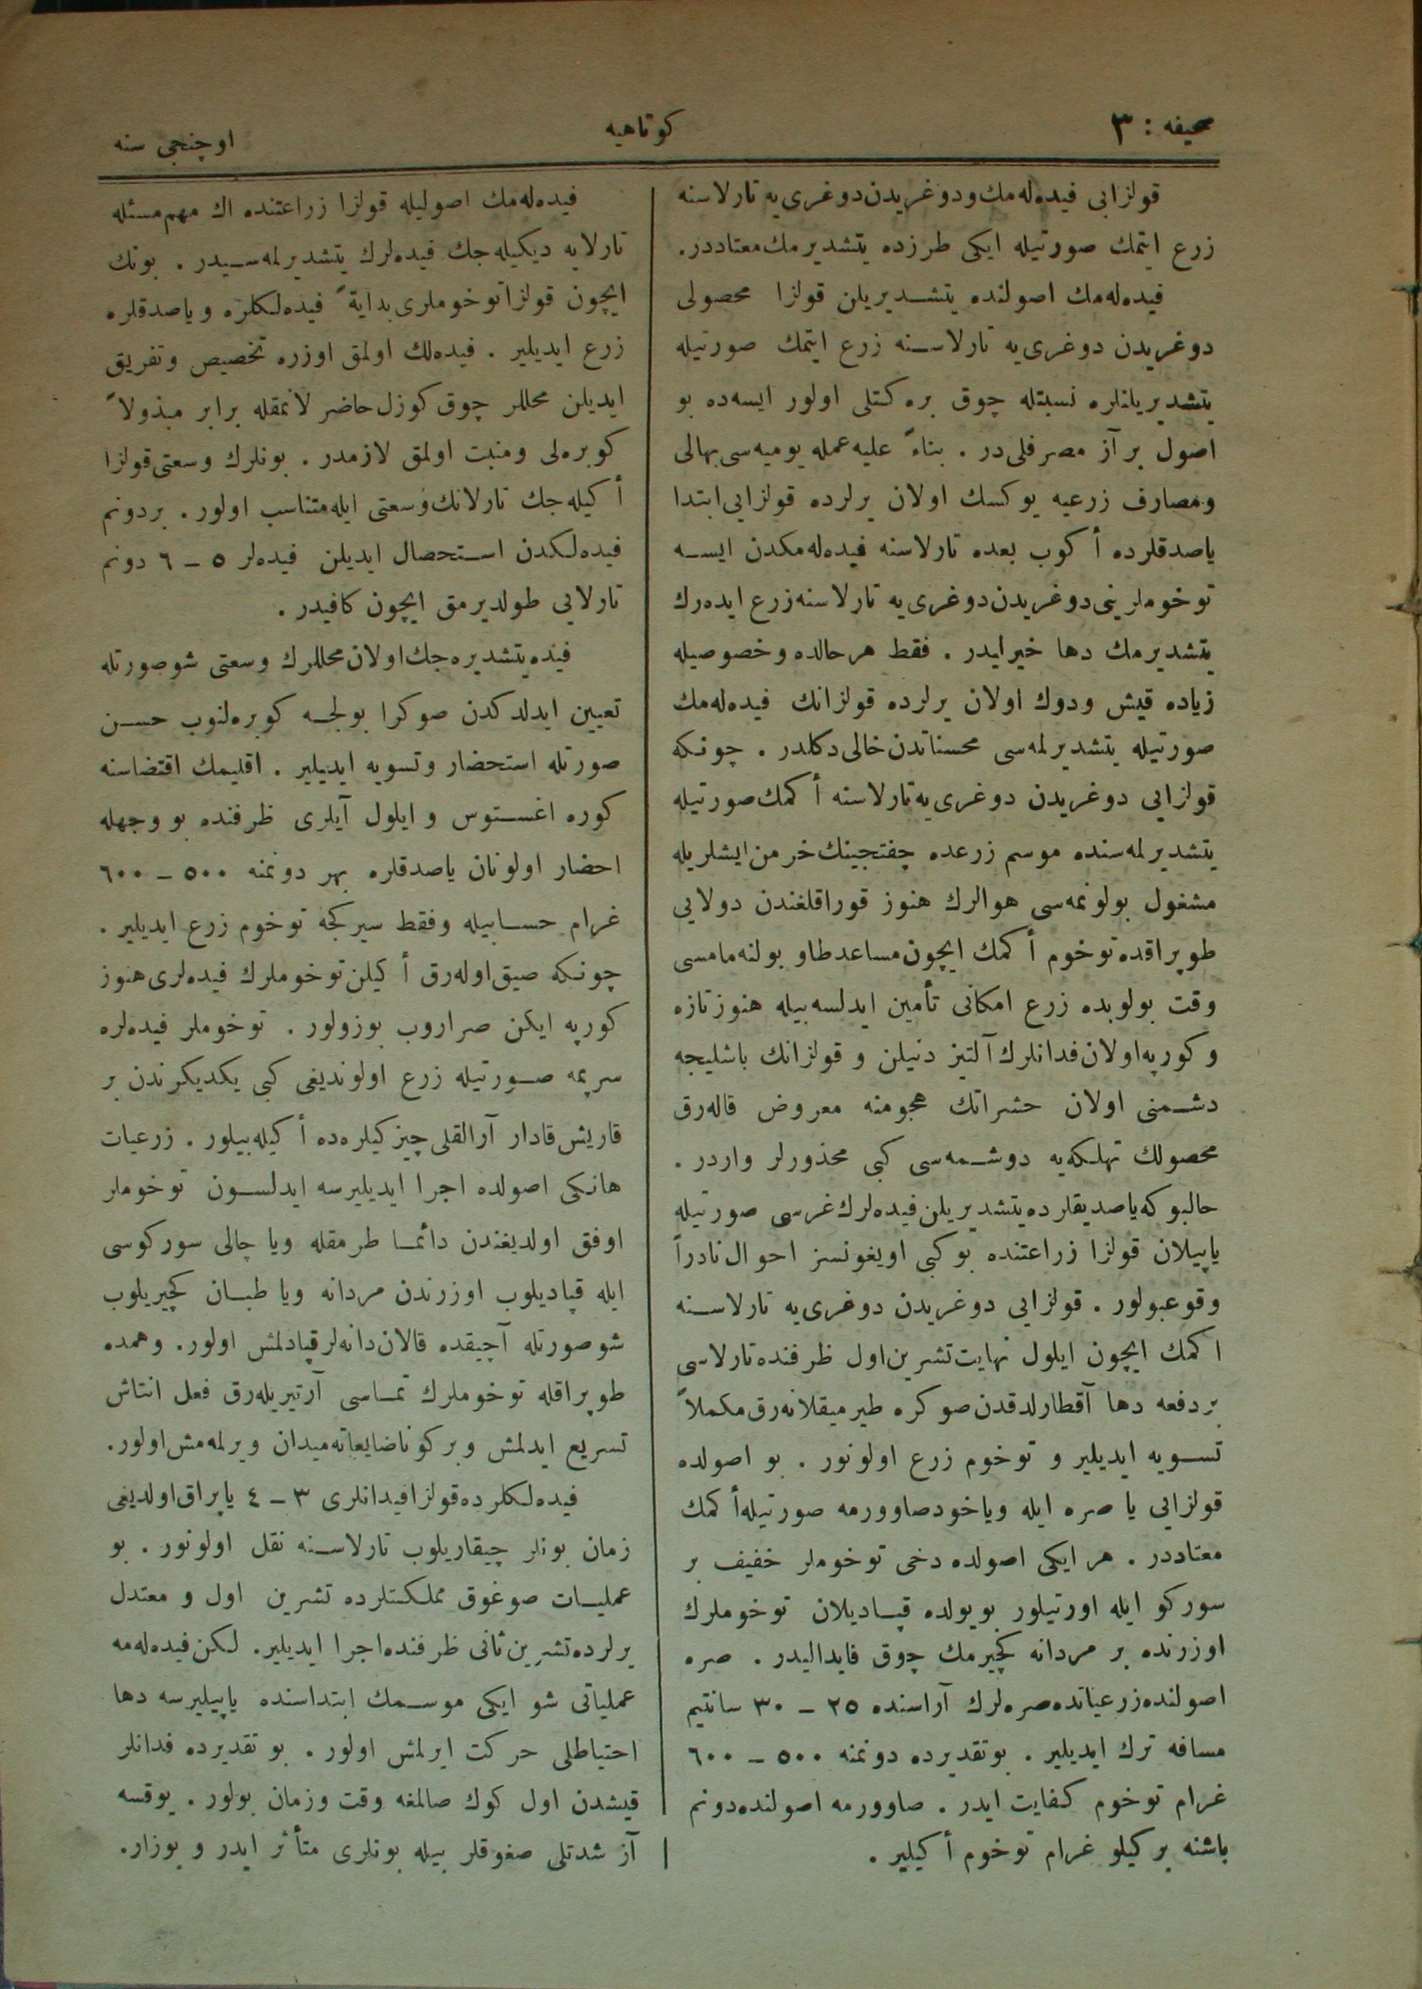 صحيفه : ٣
كوتاهيه
اوچنجی سنه
قولزايی فيده‌له‌مك ودوغريدن‌دوغری‌يه تارلاسنه
زرع ايتمك صورتيله ايكی طرزده يتشديرمك‌معتاددر.
فيده‌له‌مك اصولنده يتشديريلن قولزا محصولی
دوغريدن دوغری‌يه تارلاسنه زرع ايتمك صورتيله
يتشديريلنلره نسبتله چوق بره‌كتلی اولور ايسه‌ده بو
اصول بر آز مصرفلی‌در . بناءً عليه عمله يوميه‌سی بهالی
ومصارف زرعيه يوكسك اولان يرلرده قولزايی ابتدا
ياصدقلرده أكوب بعده تارلاسنه فيده‌له‌مكدن ايسه
توخوملرينی دوغريدن‌دوغری‌يه تارلاسنه زرع ايده‌رك
يتشديرمك دها خيرليدر . فقط هرحالده وخصوصيله
زياده قيش ودوك اولان يرلرده قولزانك فيده‌له‌مك
صورتيله يتشديرلمه‌سی محسناتدن خالی دكلدر . چونكه
قولزايی دوغريدن دوغری‌يه تارلاسنه أكمك صورتيله
يتشديرلمه‌سنده موسم زرعده چفتجينك خرمن ايشلريله
مشغول بولونمه‌سی هوالرك هنوز قوراقلغندن دولايی
طوپراقده توخوم أكمك ايچون مساعد طاو بولنه‌مامسی
وقت بولوبده زرع امكانی تأمين ايدلسه بيله هنوز تازه
وكورپه‌اولان فدانلرك آلتيز دنيلن و قولزانك باشليجه
دشمنی اولان حشراتك هجومنه معروض قاله‌رق
محصولك تهلكه‌يه دوشمه‌سی كبی محذورلر واردر .
حالبوكه ياصديقلرده يتشديريلن فيده‌لرك غرسی صورتيله
ياپيلان قولزا زراعتنده بوكبی اويغونسز احوال نادراً
وقوعبولور . قولزايی دوغريدن دوغری‌يه تارلاسنه
اكمك ايچون ايلول نهايت تشرين‌اول ظرفنده تارلاسی
بر دفعه دها آقطارلدقدن صوكره طيرميقلانه‌رق مكملاً
تسويه ايديلير و توخوم زرع اولونور . بو اصولده
قولزايی يا صره ايله وياخود صاوورمه صورتيله أكمك
معتاددر . هر ايكی اصولده دخی توخوملر خفيف بر
سوركو ايله اورتيلور بويولده قپاديلان توخوملرك
اوزرنده بر مردانه كچيرمك چوق فايداليدر . صره
اصولنده زرعياتده صره‌لرك آراسنده ٢٥ ـ ٣٠ سانتيم
مسافه ترك ايديلير . بوتقديرده دونمنه ٥٠٠ ـ ٦٠٠
غرام توخوم كفايت ايدر . صاوورمه اصولنده دونم
باشنه بر كيلو غرام توخوم أكيلير .
فيده‌له‌مك اصوليله قولزا زراعتنده اك مهم مسئله
تارلايه ديكيله‌جك فيده‌لرك يتشديرلمه‌سيدر . بونك
ايچون قولزاتوخوملری بدايةً فيده‌لكلره وياصدقلره
زرع ايديلير . فيده‌لك اولمق اوزره تخصيص وتفريق
ايديلن محللر چوق كوزل حاضرلانمقله برابر مبذولاً
كوبره‌لی ومنبت اولمق لازمدر . بونلرك وسعتی قولزا
أكيله‌جك تارلانك وسعتی ايله متناسب اولور . بردونم
فيده‌لكدن استحصال ايديلن فيده‌لر ٥ ـ ٦ دونم
تارلايی طولديرمق ايچون كافيدر .
فيده يتشديره‌جك اولان محللرك وسعتی شو صورتله
تعيين ايدلدكدن صوكرا بولجه كوبره‌لنوب حسن
صورتله استحضار وتسويه ايديلير . اقليمك اقتضاسنه
كوره اغستوس و ايلول آيلری ظرفنده بو وجهله
احضار اولونان ياصدقلره بهر دونمنه ٥٠٠ ـ ٦٠٠
غرام حسابيله وفقط سيركجه توخوم زرع ايديلير .
چونكه صيق‌اوله‌رق أكيلن توخوملرك فيده‌لری هنوز
كورپه ايكن صراروب بوزولور . توخوملر فيده‌لره
سرپمه صورتيله زرع اولونديغی كبی يكديكرندن بر
قاريش قادار آرالقلی چيزكيلره‌ده أكيله‌بيلور . زرعيات
هانكی اصولده اجرا ايديليرسه ايدلسون توخوملر
اوفق اولديغندن دائما طرمقله ويا چالی سوركوسی
ايله قپاديلوب اوزرندن مردانه ويا طبان كچيريلوب
شو صورتله آچيقده قالان دانه‌لر قپادلمش اولور. وهمده
طوپراقله توخوملرك تماسی آرتيريله‌رق فعل انتاش
تسريع ايدلمش وبركوناضايعاته ميدان ويرلمه‌مش اولور.
فيده‌لكلرده قولزا فيدانلری ٣ ـ ٤ ياپراق‌اولديغی
زمان بونلر چيقاريلوب تارلاسنه نقل اولونور . بو
عمليات صوغوق مملكتلرده تشرين اول و معتدل
يرلرده تشرين ثانی ظرفنده اجرا ايديلير. لكن فيده‌له‌مه
عملياتی شو ايكی موسمك ابتداسنده ياپيليرسه دها
احتياطلی حركت ايرلمش اولور . بو تقديرده فدانلر
قيشدن اول كوك صالمغه وقت وزمان بولور . يوقسه
آز شدتلی صغوقلر بيله بونلری متأثر ايدر و بوزار.